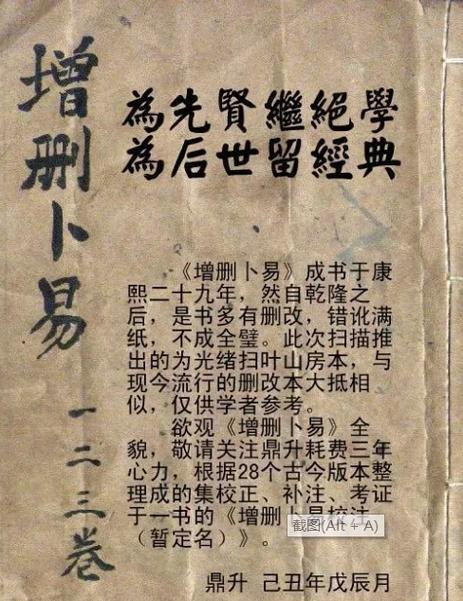 增删卜易
一二三卷
為先賢繼絕學
為后世留經典
《增删卜易》成书于康
熙二十九年，然自乾隆之
后，是书多有删改，错讹满
纸，不成全璧。此次扫描推
出的为光绪扫叶山房本，与
现今流行的删改本大抵相
似，仅供学者参考。
欲观《增删卜易》全
貌，敬请关注鼎升耗费三年
心力，根据28个古今版本整
理成的集校正、补注、考证
于一书的《增删卜易校注》
（暂定名）》。
截图(Alt + A)
鼎升 己丑年戊辰月